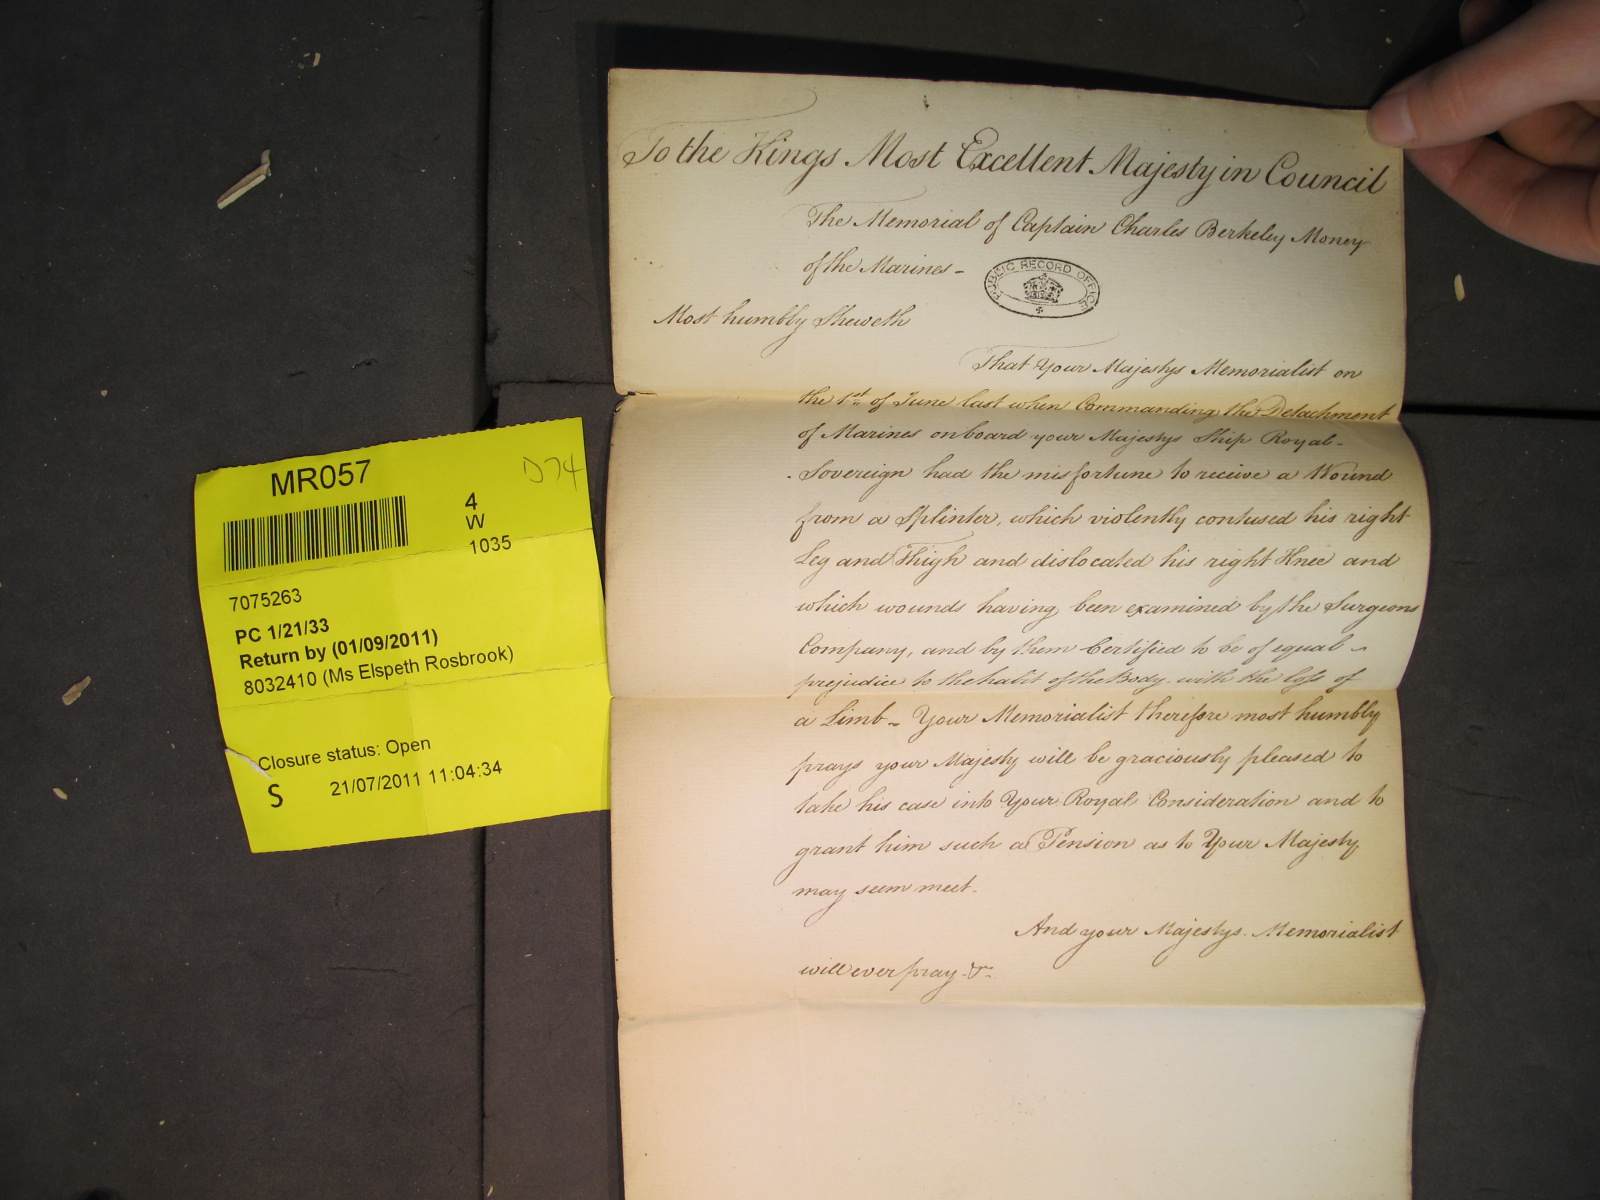 To the Kings Most Excellent Majesty in Council
The Memorial of Captain Charles Berkeley Money
of the Marines -
PUBLIC RECORD OFFICE
Most humbly Sheweth
That Your Majestys Memorialist on
the 1st of June last when Commanding the Detachment
of Marines onboard your Majestys Ship Royal-
Sovereign had the misfortune to receive a Wound
from a Splinter, which violently contused his right
Leg and Thigh and dislocated his right Knee and
which wounds having been examined by the Surgeons
Company, and by them Certified to be of equal
prejudice to the habit of the Body with the loss of
a Limb - Your Memorialist therefore most humbly
prays your Majesty will be graciously pleased to
take his case into Your Royal Consideration and to
grant him such a Pension as to Your Majesty
may seem meet.
And your Majestys Memorialist
will ever pray &c
MR057
D74
4
W
1035
7075263
PC 1/21/33
Return by (01/09/2011)
8032410 (Ms Elspeth Rosbrook)
Closure status: Open
S
21/07/2011 11:04:34